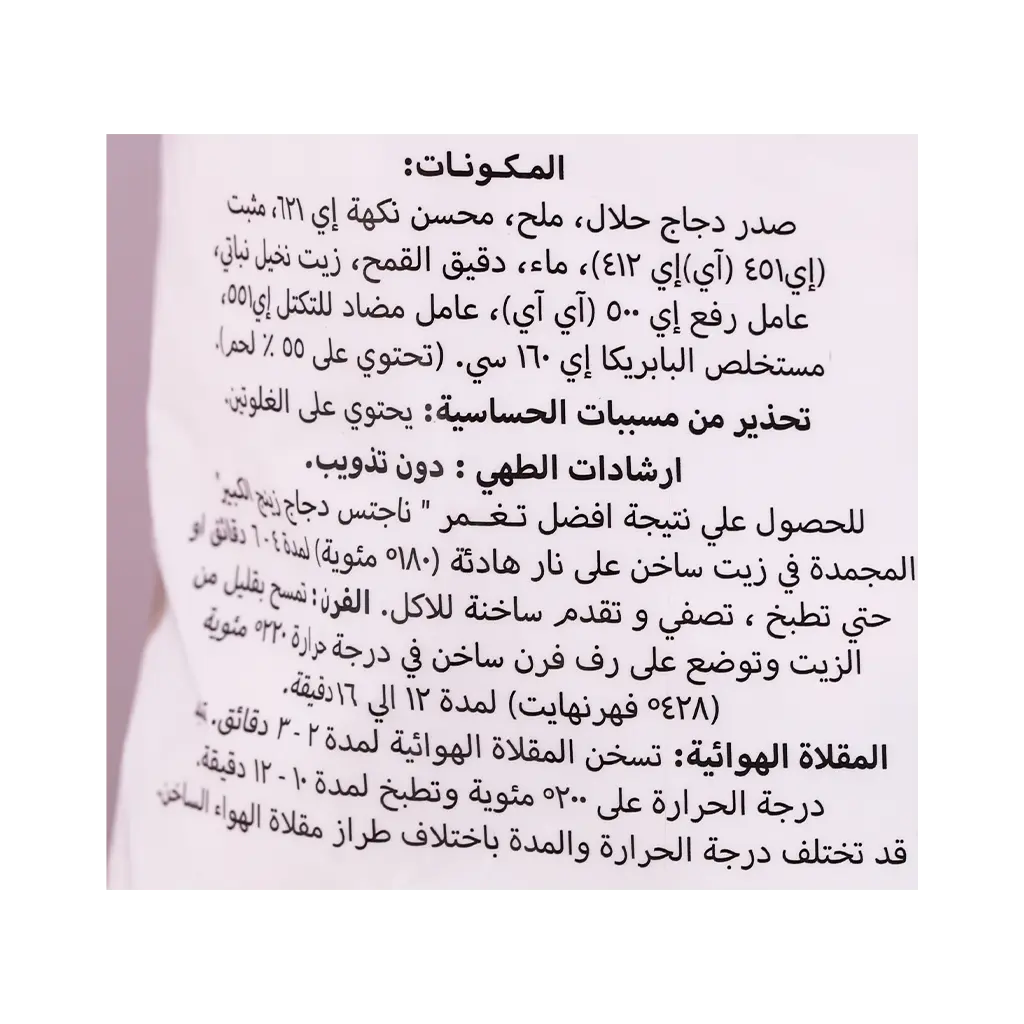 المكونات:
صدر دجاج حلال، ملح، محسن نكهة إي ٦٢١، مثبت
(إي٤٥١ (آي)إي ٤١٢)، ماء، دقيق القمح، زيت نخيل نباتي،
عامل رفع إي ٥٠٠ (آي آي)، عامل مضاد للتكتل إي٥٥١،
مستخلص البابريكا إي ١٦٠ سي. (تحتوي على ٥٥ ٪ لحم).
تحذير من مسببات الحساسية: يحتوي على الغلوتين.
ارشادات الطهي : دون تذويب.
للحصول علي نتيجة افضل تغمر " ناجتس دجاج زينج الكبير"
المجمدة في زيت ساخن على نار هادئة (١٨٠° مئوية) لمدة ٤ - ٦ دقائق او
حتي تطبخ ، تصفي و تقدم ساخنة للاكل. الفرن: تمسح بقليل من
الزيت وتوضع على رف فرن ساخن في درجة حرارة ٢٢٠° مئوية
(٤٢٨° فهرنهايت) لمدة ١٢ الي ١٦ دقيقة.
المقلاة الهوائية: تسخن المقلاة الهوائية لمدة ٢ - ٣ دقائق.
درجة الحرارة على ٢٠٠° مئوية وتطبخ لمدة ١٠ - ١٢ دقيقة.
قد تختلف درجة الحرارة والمدة باختلاف طراز مقلاة الهواء الساخن.